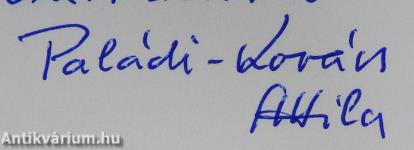 Paládi-Kovács
Attila
Antikvárium.hu